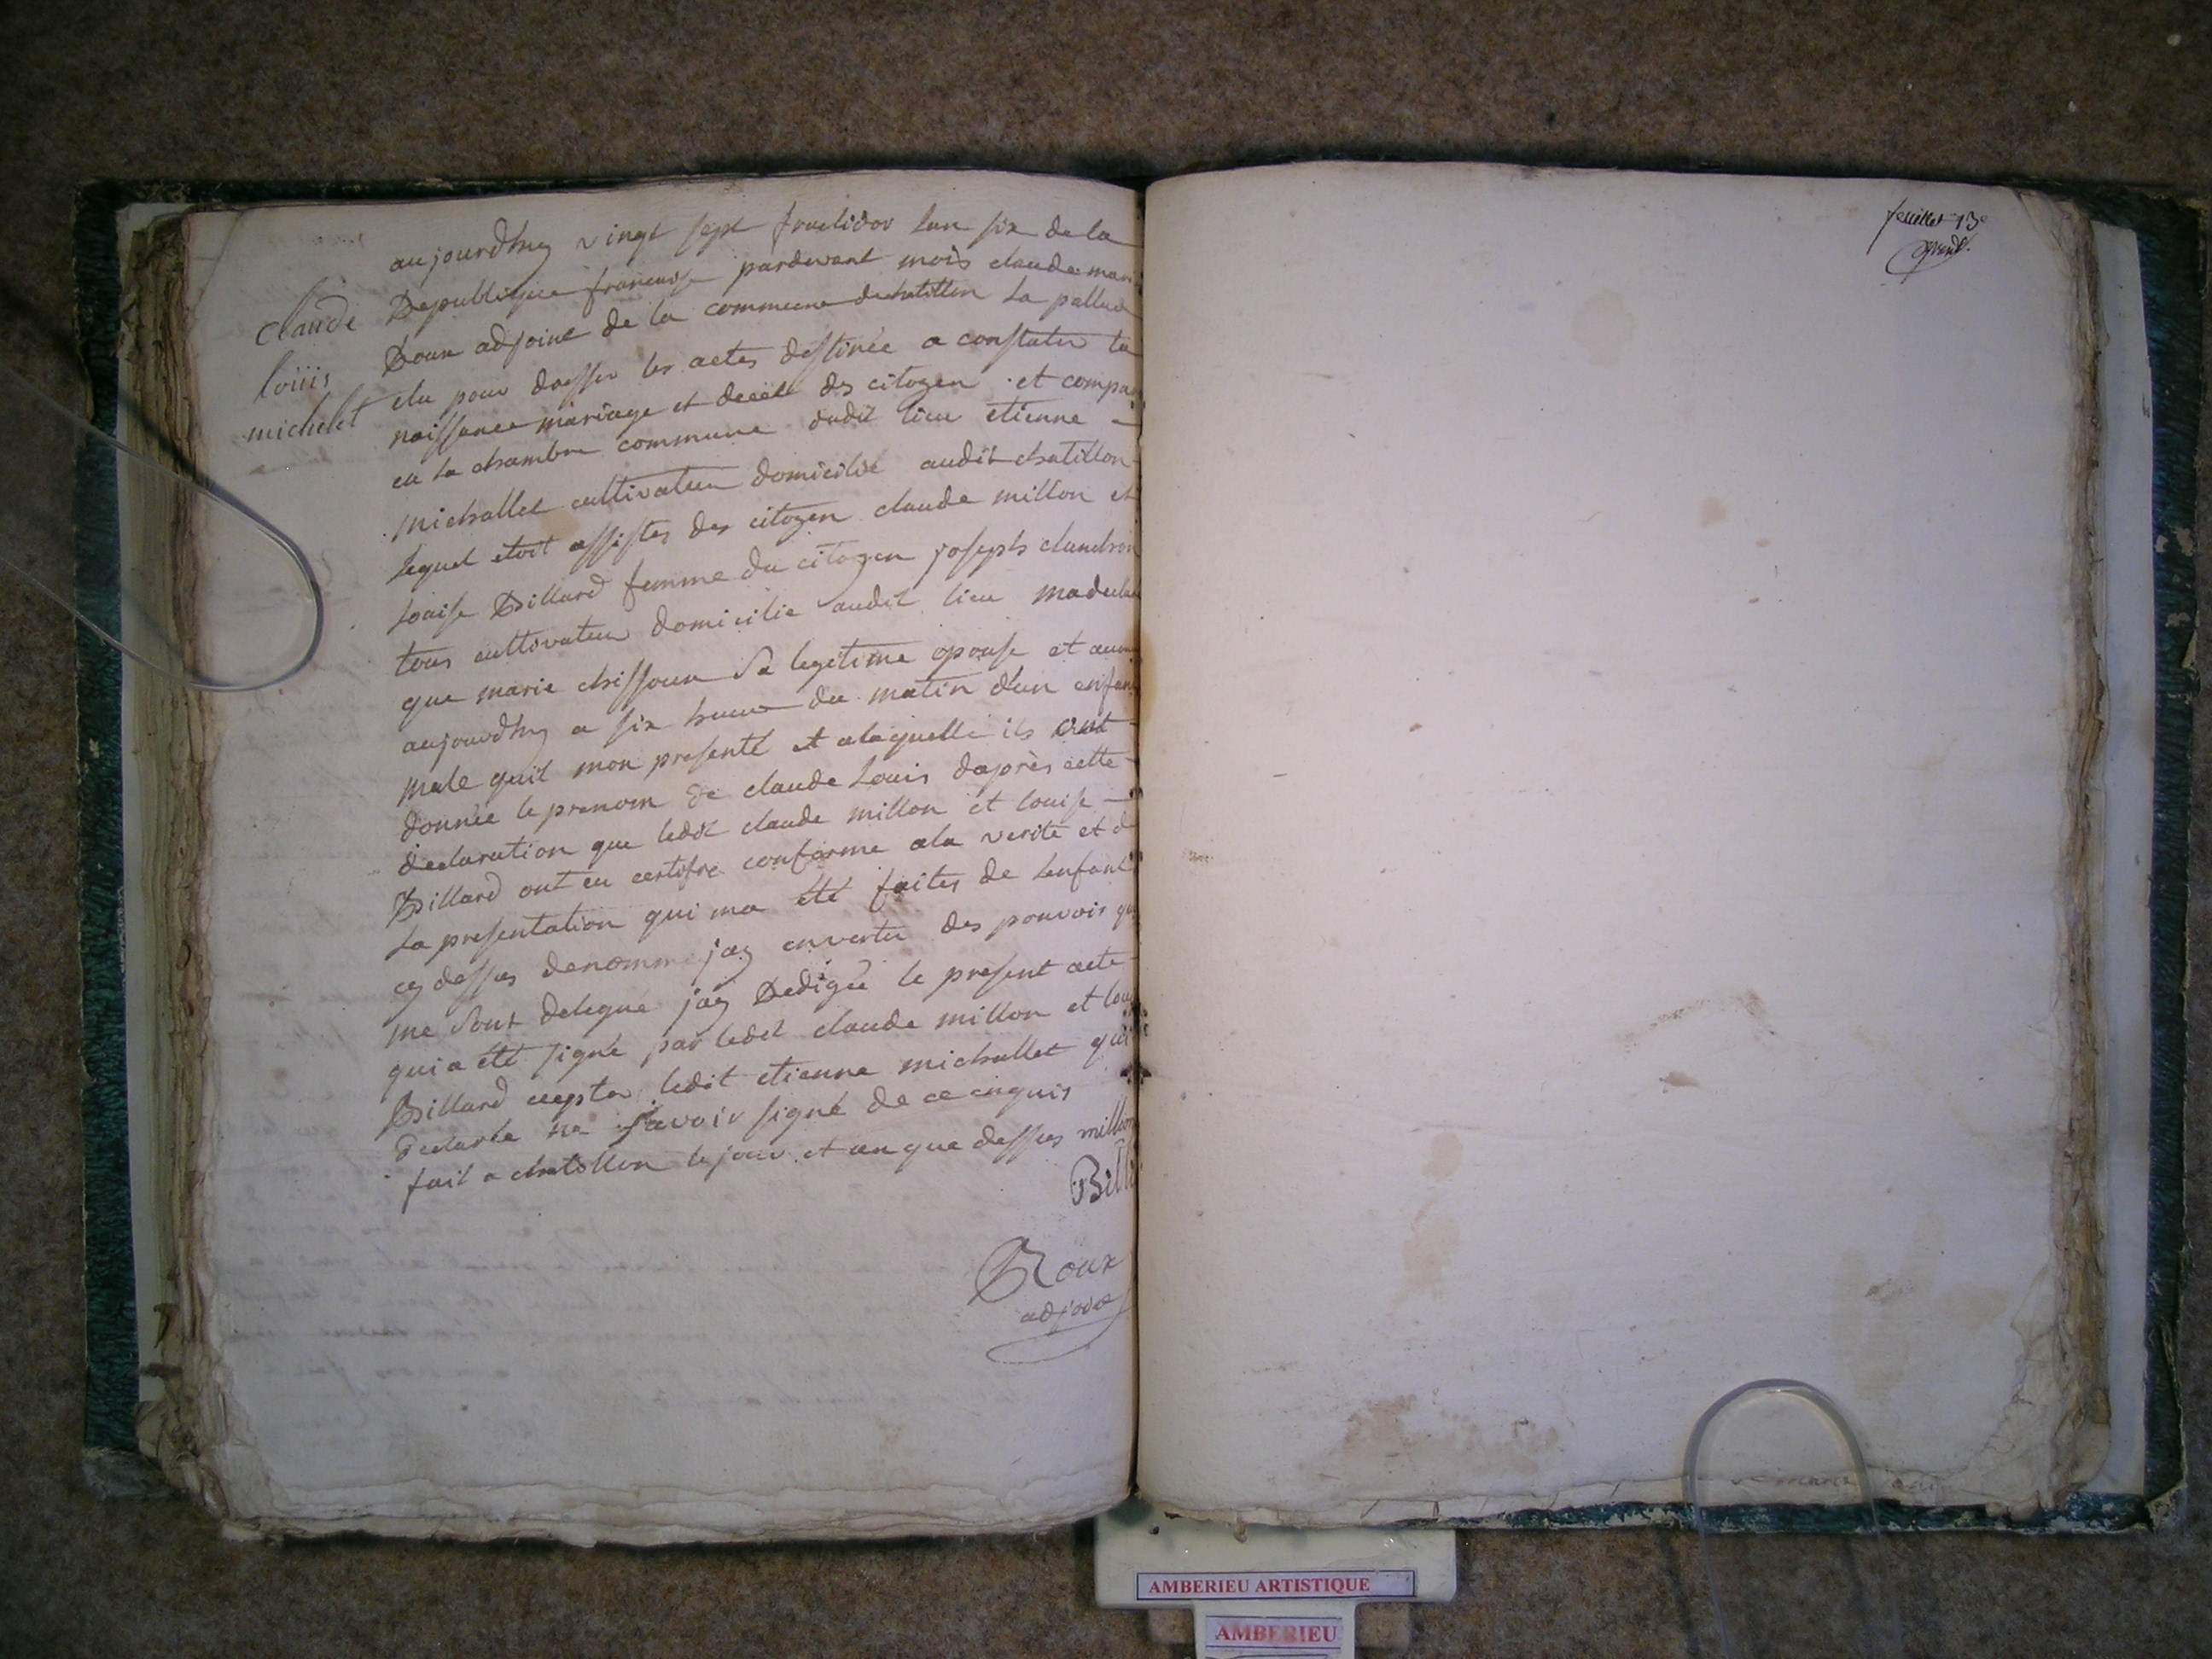 claude
loüis
michelet
aujourdhuy vingt sept fructidor lan six de la
Republique francaise pardevant mois claude mari
Roux adjoint de la commune dechatillon La pallud
elu pour dresser les actes destinée a constater la
naissance mariage et decéé des citoyen et compa
en la chambre commune dudit lieu etienne
michallet cultivateur domicilié audit chatillon
Lequel etoit assistes des citoyen claude millon et
Louise Billard femme du citoyen joseph
tous cultivateur domicilie audit lieu madecla
que marie chissoux Sa legitime epouse et
aujourdhuy a six heure du matin d'un enfan
male quil mon presenté et alaquelle ils ont
donnée le prenom de claude Louis daprès cette
declaration que ledit claude millon et louise
Billard ont eu certifie conforme ala verité et d
La presentation qui ma été faites de Lenfant
cy dessus denommé jay envertu des pouvoir qu
me Sont delegué jay Redigée le present acte
qui a été signé par ledit claude millon et lou
Billard ledit etienne michallet qui
declaré ne Savoir signé de ce enquis
fait a chatillon le jour et an que dessus millon
Bill
Roux
adjoint
feuillet 13e
AMBERIEU ARTISTIQUE
AMBERIEU